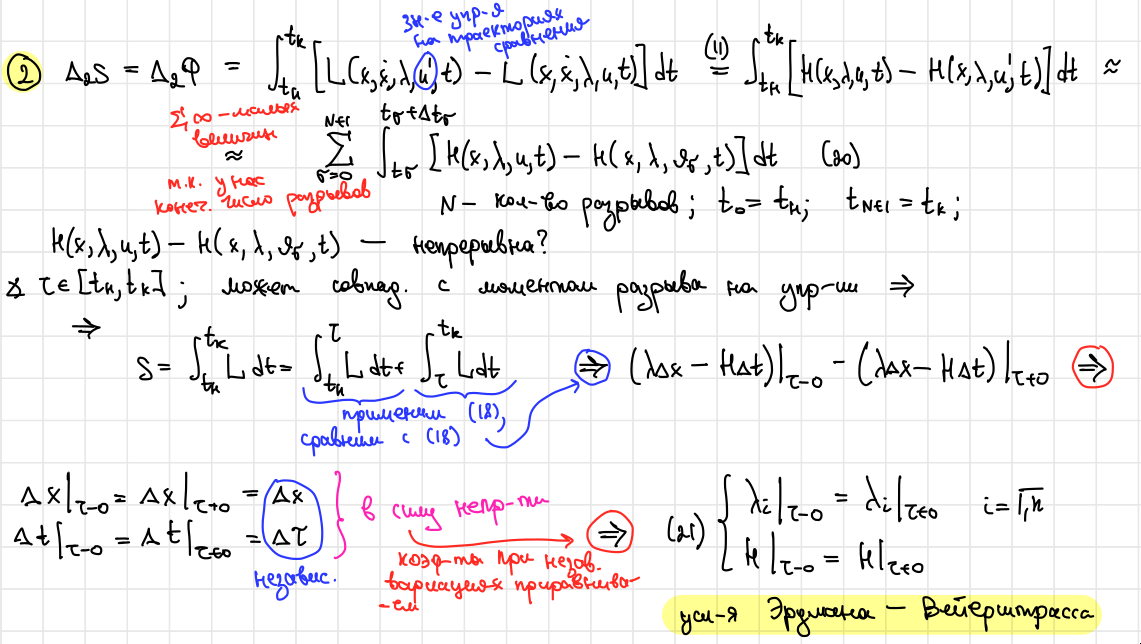 зн-е упр-я
на траекториях
сравнения
② Δ₂S = Δ₂φ = ∫_{tн}^{tк} [L(x,ẋ,λ,u',t) − L(x,ẋ,λ,u,t)] dt (11)= ∫_{tн}^{tк} [H(x,λ,u,t) − H(x,λ,u',t)] dt ≈
Σ ∞-малых
величин
≈ Σ_{σ=0}^{N+1} ∫_{tσ}^{tσ+Δtσ} [H(x,λ,u,t) − H(x,λ,ϑσ,t)] dt (20)
т.к. у нас
конеч. число разрывов
N — кол-во разрывов; t₀ = tн; t_{N+1} = tк;
H(x,λ,u,t) − H(x,λ,ϑσ,t) — непрерывна?
∀ τ∈[tн,tк]; может совпад. с моментом разрыва на упр-ии ⇒
⇒ S = ∫_{tн}^{tк} L dt = ∫_{tн}^{τ} L dt + ∫_{τ}^{tк} L dt ⇒ (λΔx − HΔt)|_{τ−0} − (λΔx − HΔt)|_{τ+0} ⇒
применим (18),
сравним с (18)
Δx|_{τ−0} = Δx|_{τ+0} = Δx
Δt|_{τ−0} = Δt|_{τ+0} = Δτ
независ.
} в силу непр-ти
⇒
коэф-ты при незав.
вариациях приравнива-
-ем
(21) { λᵢ|_{τ−0} = λᵢ|_{τ+0} i = 1,n
H|_{τ−0} = H|_{τ+0}
усл-я Эрдмана — Вейерштрасса